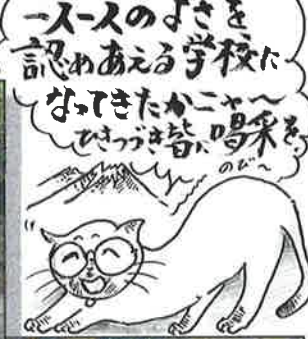 一人一人のよさを
認めあえる学校に
なってきたかニャ〜
ひきつづき皆に喝采を
のび〜